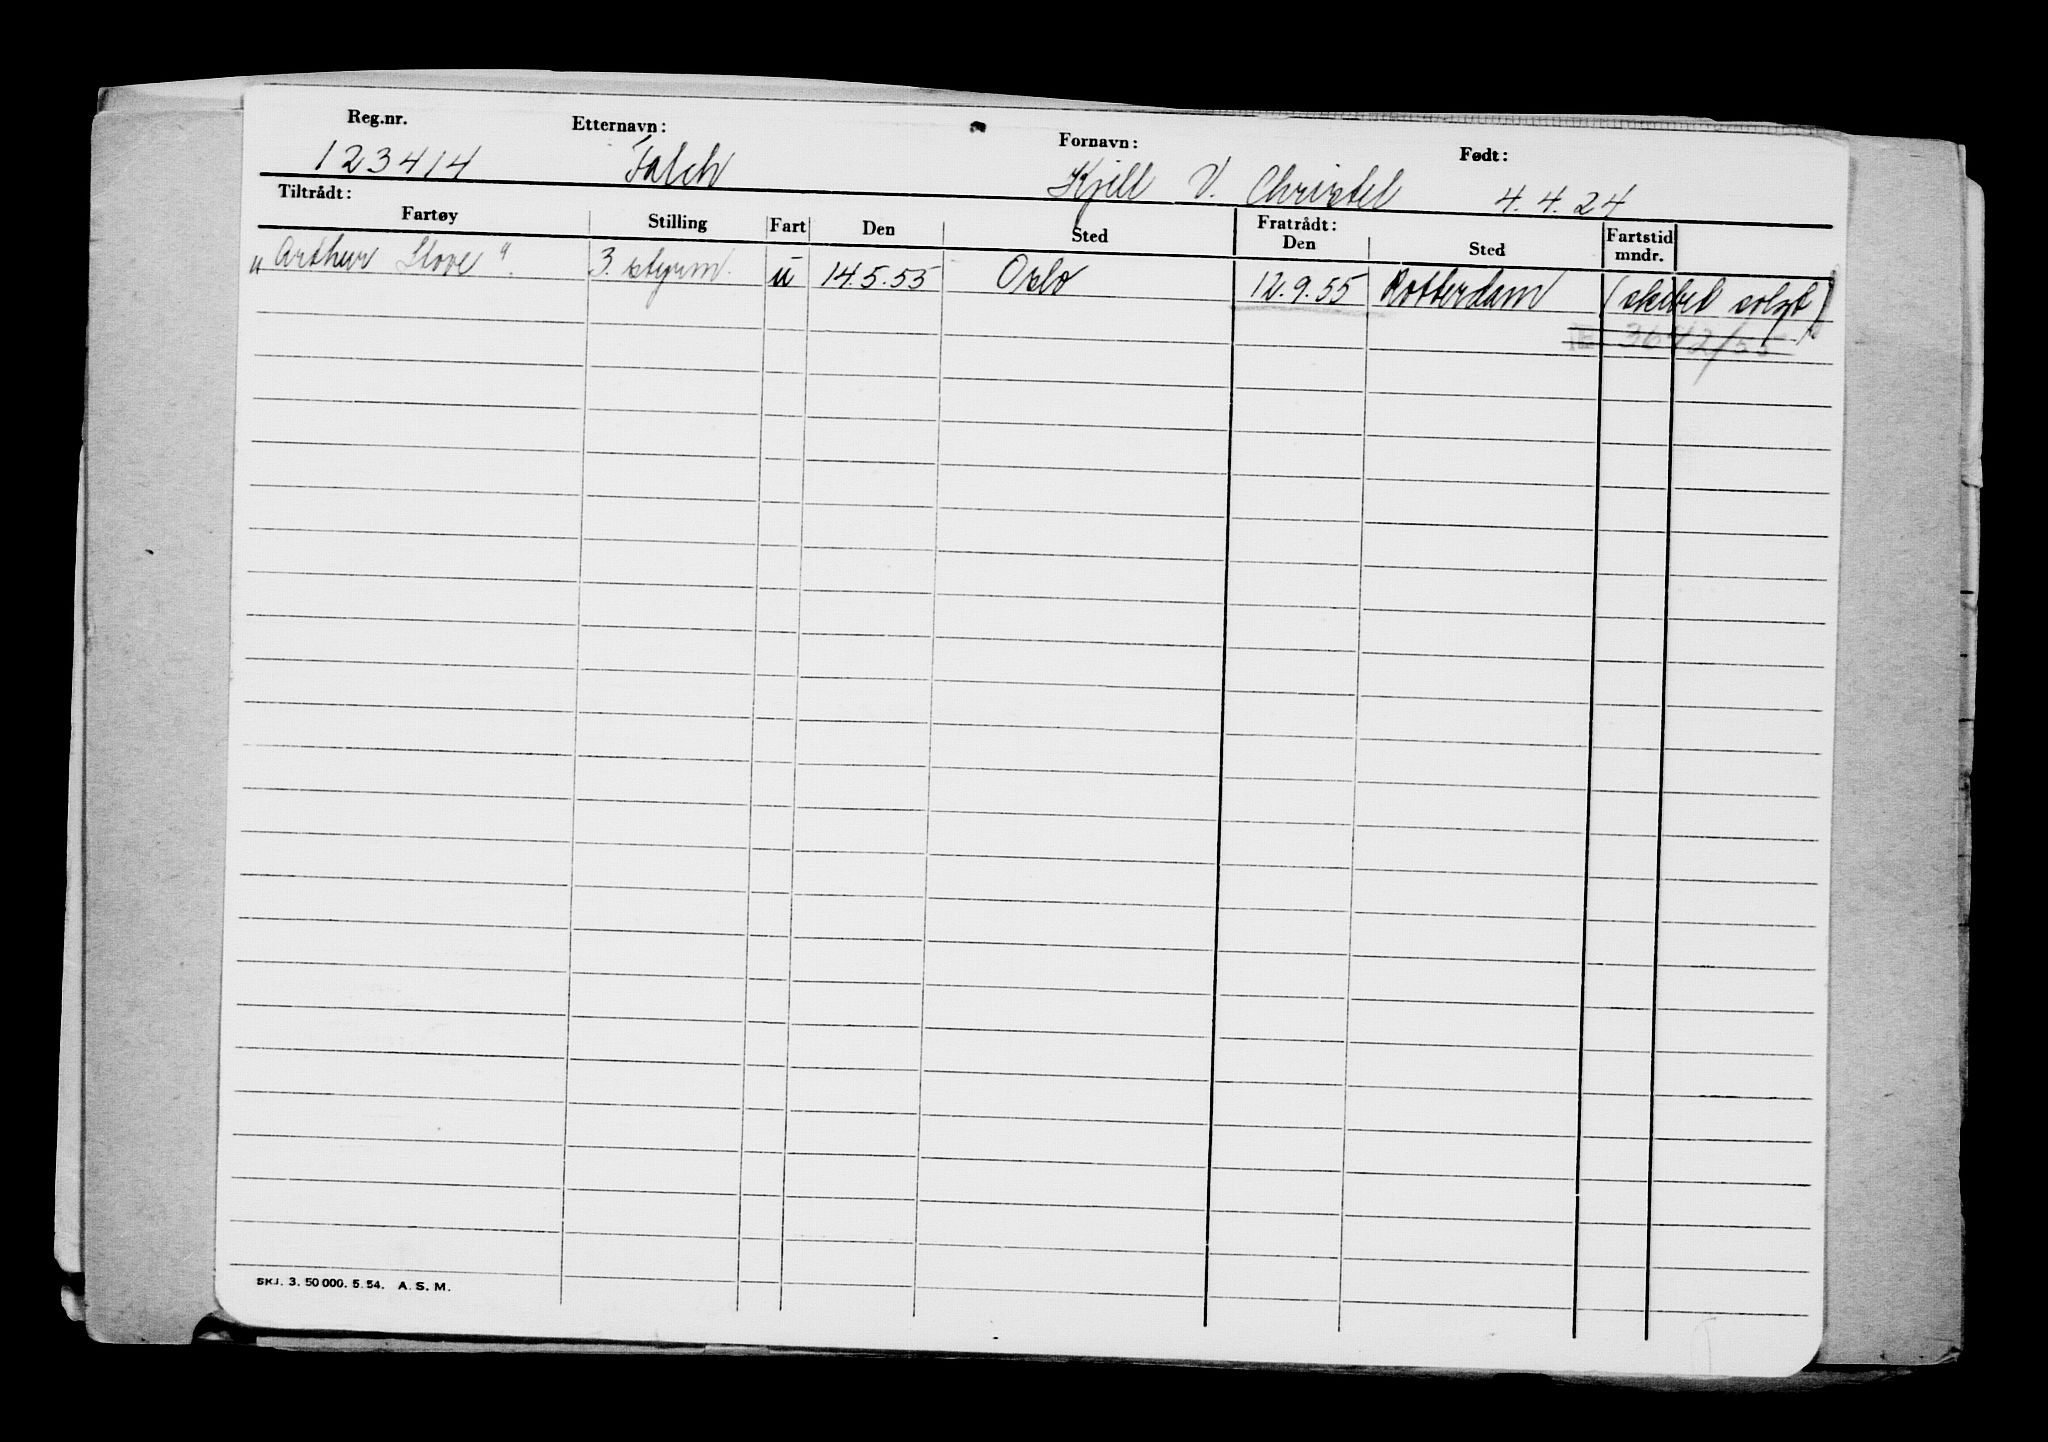 Reg.nr. Etternavn: Fornavn: Født:
123414 Falch Kjell V. Christel 4.4.24
Tiltrådt: Fratrådt:
Fartøy Stilling Fart Den Sted Den Sted Fartstid mndr.
"Arthur Stove". 3. styrm. u 14.5.55 Oslo 12.9.55 Rotterdam (skibet solgt)
3642/55
SKJ. 3. 50 000. 5. 54. A. S. M.